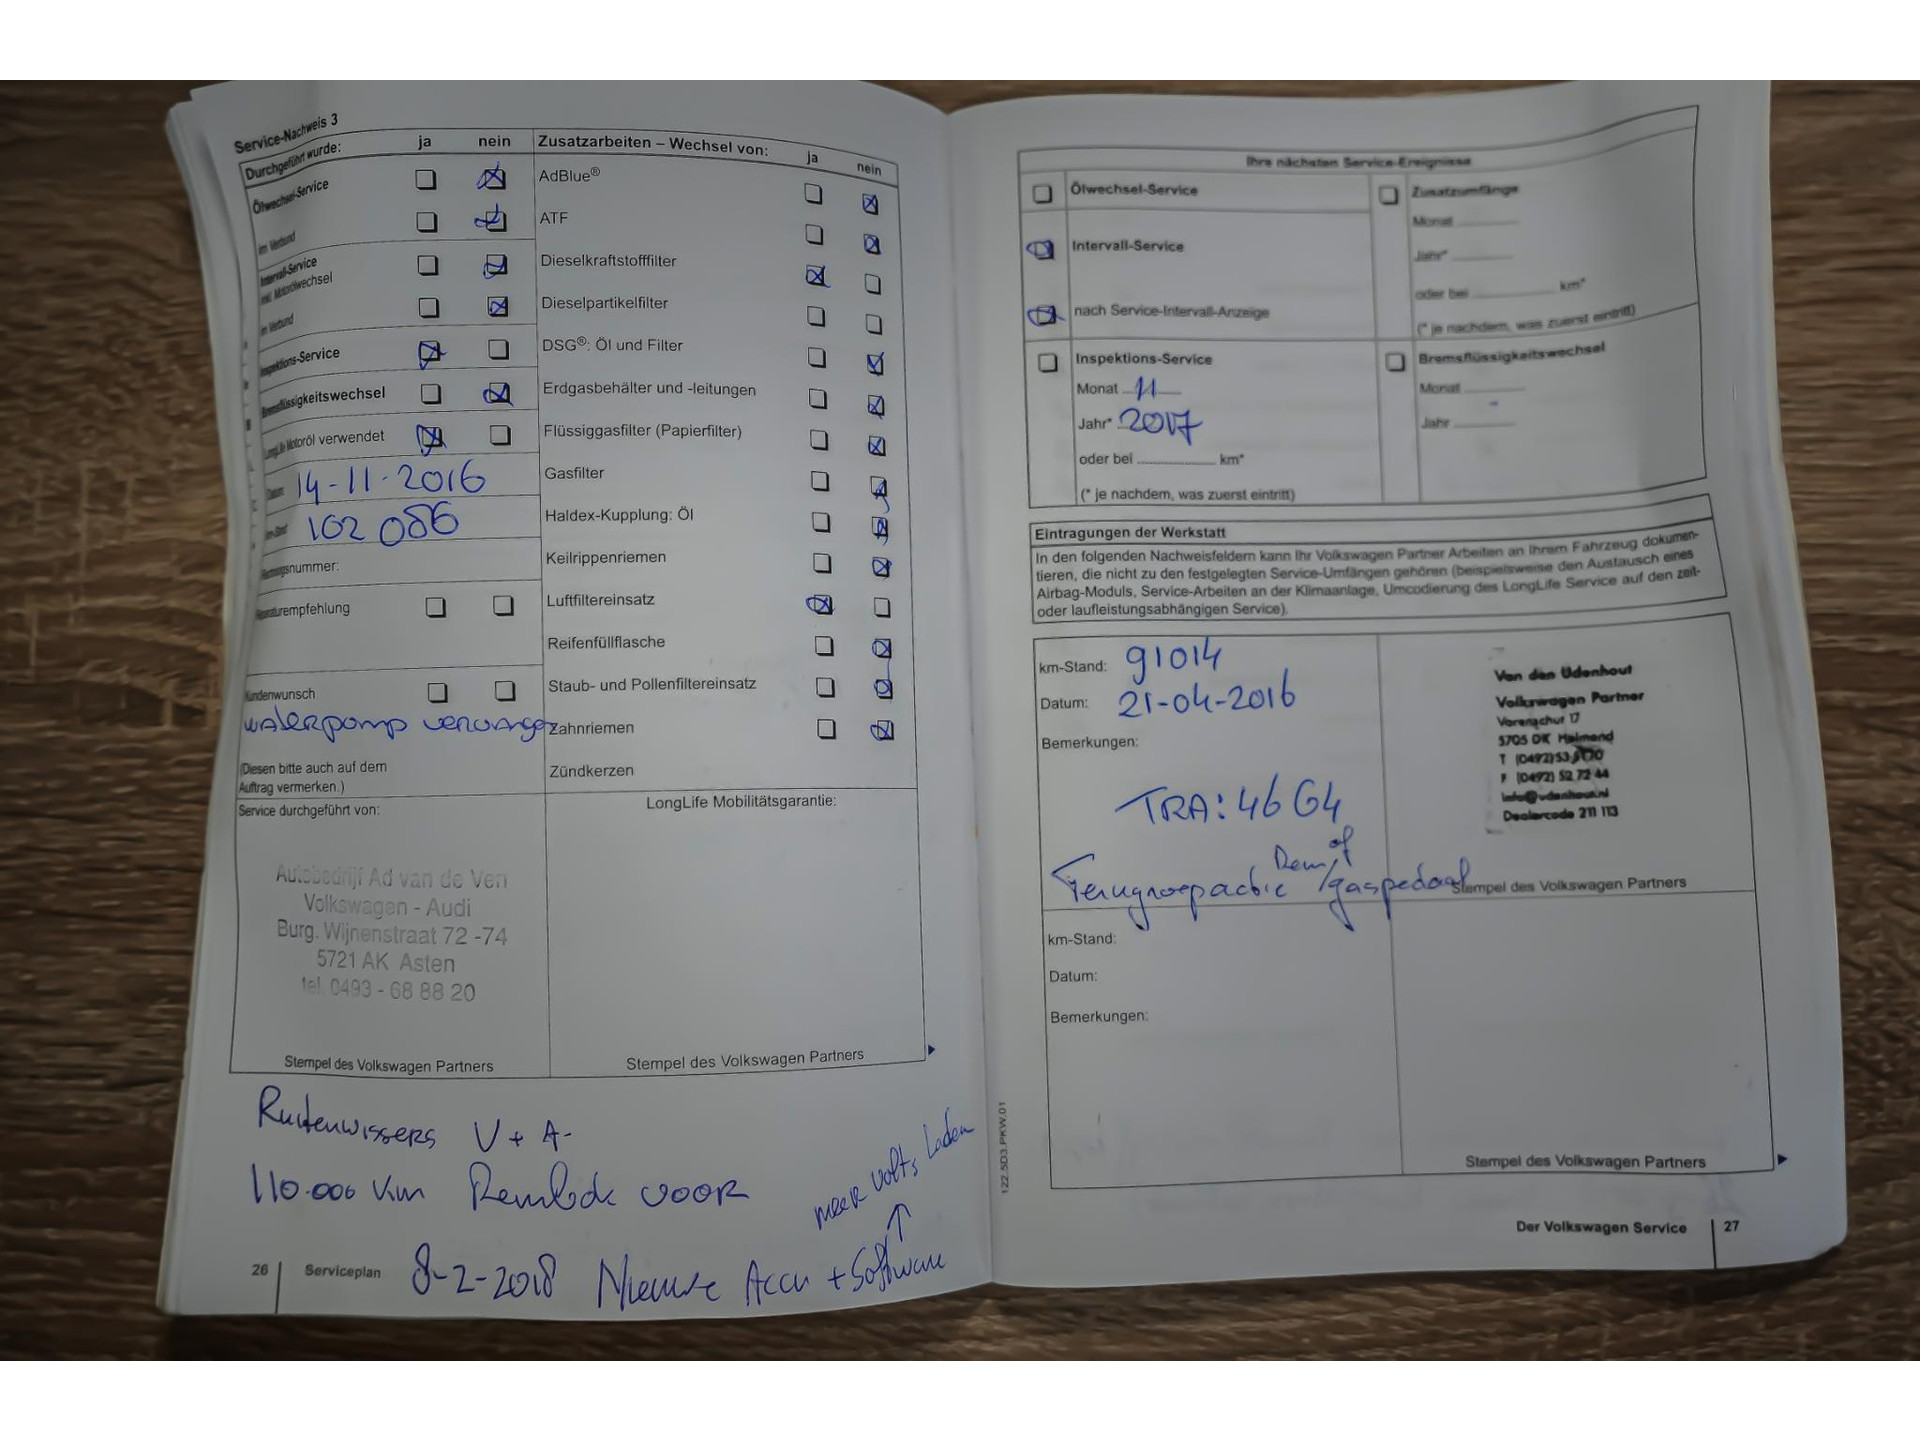 Service-Nachweis 3
Durchgeführt wurde: ja nein
Ölwechsel-Service
im Verbund
Intervall-Service
inkl. Motorölwechsel
im Verbund
Inspektions-Service
Bremsflüssigkeitswechsel
LongLife Motoröl verwendet
Datum: 14-11-2016
km-Stand: 102 086
Rechnungsnummer:
Reparaturempfehlung
Kundenwunsch
waterpomp vervangen
(Diesen bitte auch auf dem
Auftrag vermerken.)
Service durchgeführt von:
Autobedrijf Ad van de Ven
Volkswagen - Audi
Burg. Wijnenstraat 72 -74
5721 AK Asten
tel. 0493 - 68 88 20
Stempel des Volkswagen Partners
Zusatzarbeiten – Wechsel von: ja nein
AdBlue®
ATF
Dieselkraftstofffilter
Dieselpartikelfilter
DSG®: Öl und Filter
Erdgasbehälter und -leitungen
Flüssiggasfilter (Papierfilter)
Gasfilter
Haldex-Kupplung: Öl
Keilrippenriemen
Luftfiltereinsatz
Reifenfüllflasche
Staub- und Pollenfiltereinsatz
Zahnriemen
Zündkerzen
LongLife Mobilitätsgarantie:
Stempel des Volkswagen Partners
Ruitenwissers V + A-
110.000 Km Remblok voor
meer volts laden
8-2-2018 Nieuwe Accu + Software
26 Serviceplan
Ihre nächsten Service-Ereignisse
Ölwechsel-Service
Intervall-Service
nach Service-Intervall-Anzeige
Zusatzumfänge
Monat
Jahr*
oder bei km*
(* je nachdem, was zuerst eintritt)
Inspektions-Service
Monat 11
Jahr* 2017
oder bei km*
(* je nachdem, was zuerst eintritt)
Bremsflüssigkeitswechsel
Monat
Jahr
Eintragungen der Werkstatt
In den folgenden Nachweisfeldern kann Ihr Volkswagen Partner Arbeiten an Ihrem Fahrzeug dokumen-
tieren, die nicht zu den festgelegten Service-Umfängen gehören (beispielsweise den Austausch eines
Airbag-Moduls, Service-Arbeiten an der Klimaanlage, Umcodierung des LongLife Service auf den zeit-
oder laufleistungsabhängigen Service).
km-Stand: 91014
Datum: 21-04-2016
Bemerkungen:
TRA: 46G4
Terugroepactie Rem/ of gaspedaal
Van den Udenhout
Volkswagen Partner
Varenschut 17
5705 DK Helmond
F (0492) 52 72 44
info@udenhout.nl
Dealercode 211 113
Stempel des Volkswagen Partners
km-Stand:
Datum:
Bemerkungen:
Stempel des Volkswagen Partners
122.5D3.PKW.01
Der Volkswagen Service 27